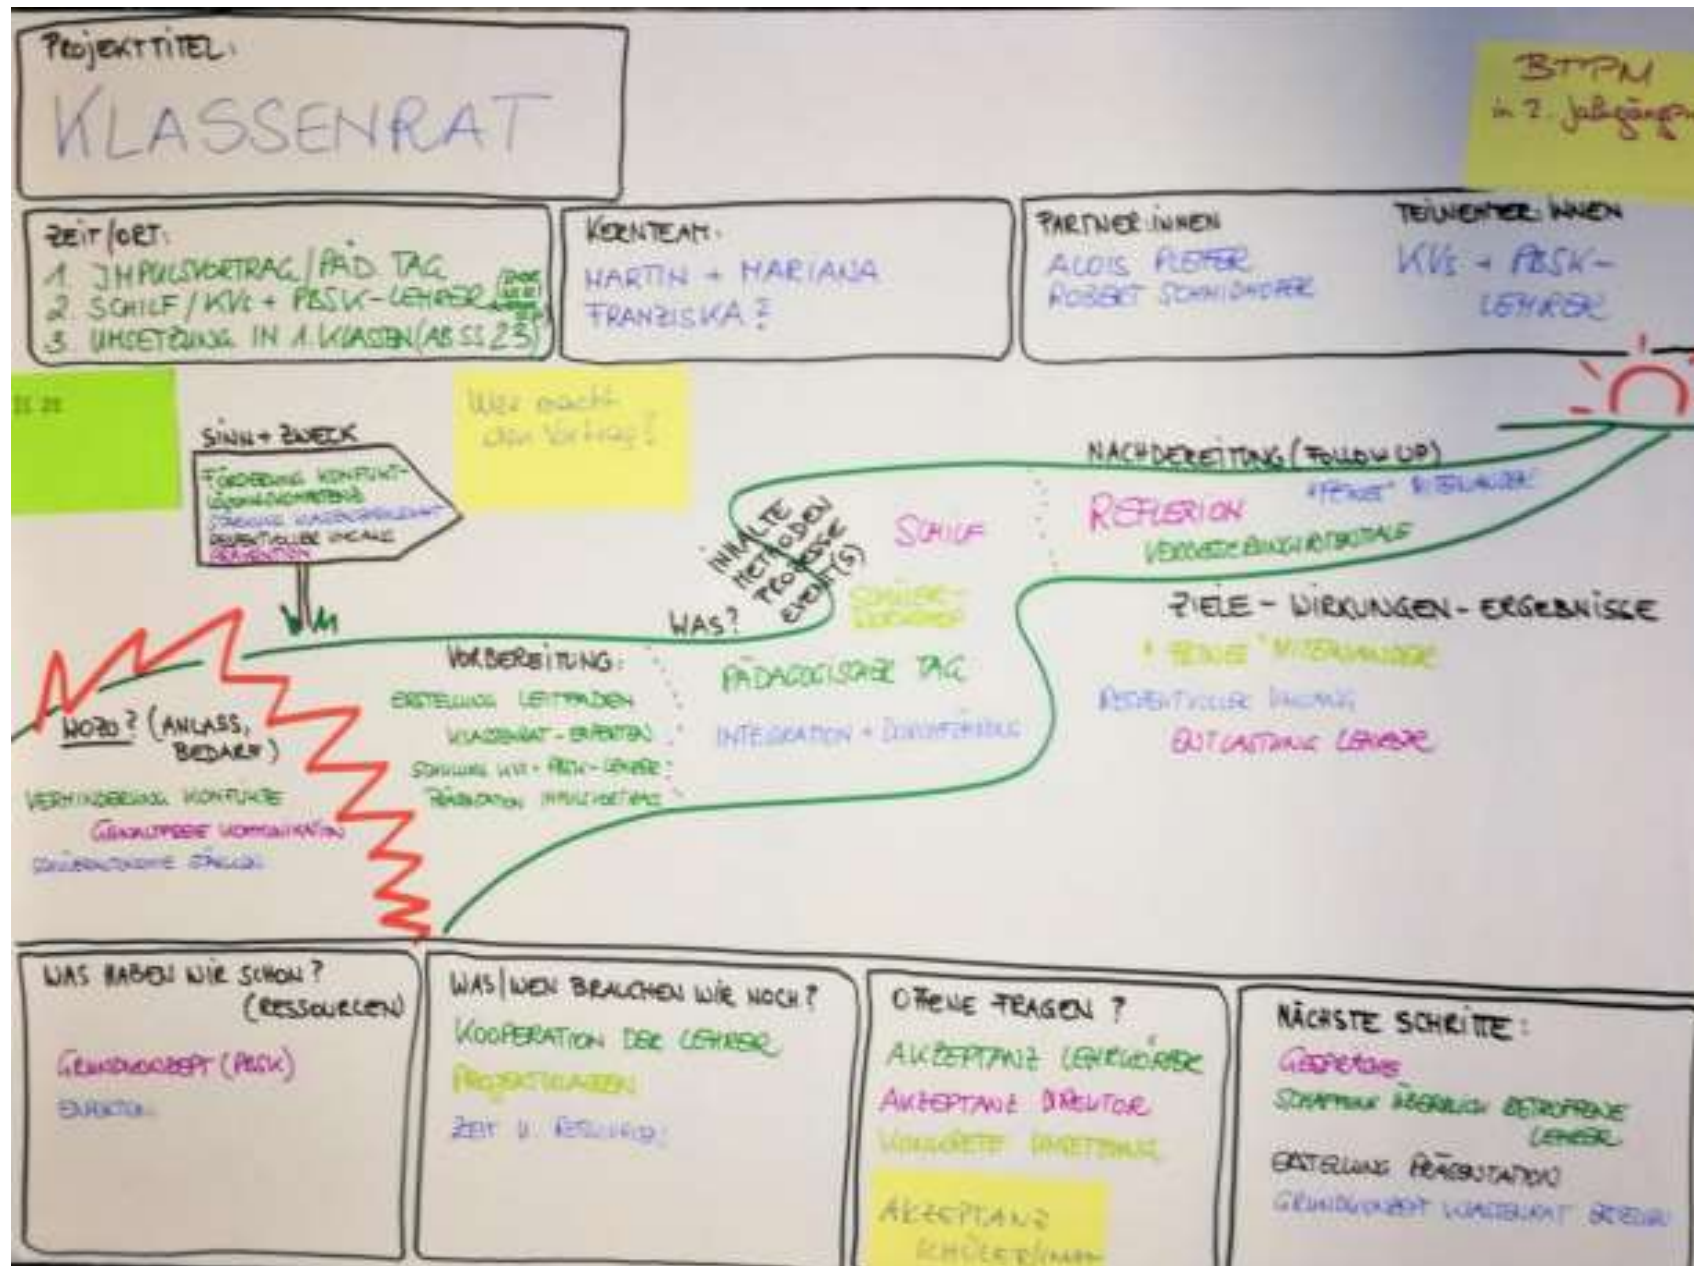 PROJEKTTITEL:
KLASSENRAT
BTPM
in 2. Jahrgängen
ZEIT/ORT:
1. IMPULSVORTRAG/PÄD. TAG
2. SCHILF/KVs + PBSK-LEHRER
3. UMSETZUNG IN 1. KLASSEN (AB SS 23)
KERNTEAM:
MARTIN + MARIANA
FRANZISKA?
PARTNER:INNEN
ALOIS
ROBERT SCHMIDHOFER
TEILNEHMER:INNEN
KVs + PBSK-
LEHRER
SINN + ZWECK
FÖRDERUNG KONFLIKT-
LÖSUNGSKOMPETENZ
STÄRKUNG KLASSENGEMEINSCHAFT
RESPEKTVOLLER UMGANG
PRÄVENTION
Wer macht
den Vortrag?
WOZU? (ANLASS,
BEDARF)
VERMINDERUNG KONFLIKTE
GEWALTFREIE KOMMUNIKATION
VORBEREITUNG:
ERSTELLUNG LEITFADEN
KLASSENRAT-EXPERTEN
SCHULUNG KVs + PBSK-LEHRER
PRÄSENTATION IMPULSVORTRAG
WAS?
INHALTE
METHODEN
PROZESSE
EVENT(S)
SCHILF
SCHÜLER-
WORKSHOP
PÄDAGOGISCHER TAG
INTEGRATION + DURCHFÜHRUNG
NACHBEREITUNG (FOLLOW UP)
REFLEXION
MITEINANDER
VERBESSERUNGSPOTENTIALE
ZIELE - WIRKUNGEN - ERGEBNISSE
MITEINANDER
RESPEKTVOLLER UMGANG
ENTLASTUNG LEHRER
WAS HABEN WIR SCHON?
(RESSOURCEN)
GRUNDKONZEPT (PBSK)
WAS/WEN BRAUCHEN WIR NOCH?
KOOPERATION DER LEHRER
PROJEKTKLASSEN
ZEIT U.
OFFENE FRAGEN?
AKZEPTANZ LEHRKÖRPER
AKZEPTANZ DIREKTOR
KONKRETE UMSETZUNG
AKZEPTANZ
SCHÜLER/innen
NÄCHSTE SCHRITTE:
GESPRÄCHE
SCHAFFUNG ÜBERBLICK BETROFFENE
LEHRER
ERSTELLUNG PRÄSENTATION
GRUNDKONZEPT KLASSENRAT